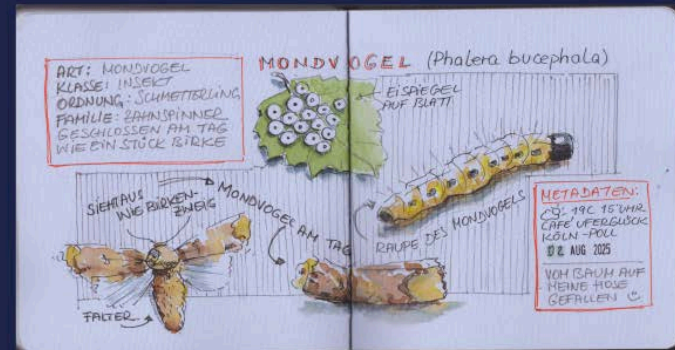 MONDVOGEL (Phalera bucephala)
ART: MONDVOGEL
KLASSE: INSEKT
ORDNUNG: SCHMETTERLING
FAMILIE: ZAHNSPINNER
GESCHLOSSEN AM TAG
WIE EIN STÜCK BIRKE
EISPIEGEL
AUF BLATT
SIEHT AUS
WIE BIRKEN-
ZWEIG
MONDVOGEL AM TAG
RAUPE DES MONDVOGELS
FALTER
METADATEN:
19C 15 UHR
CAFÉ UFERGLÜCK
KÖLN-POLL
02 AUG 2025
VOM BAUM AUF
MEINE HOSE
GEFALLEN